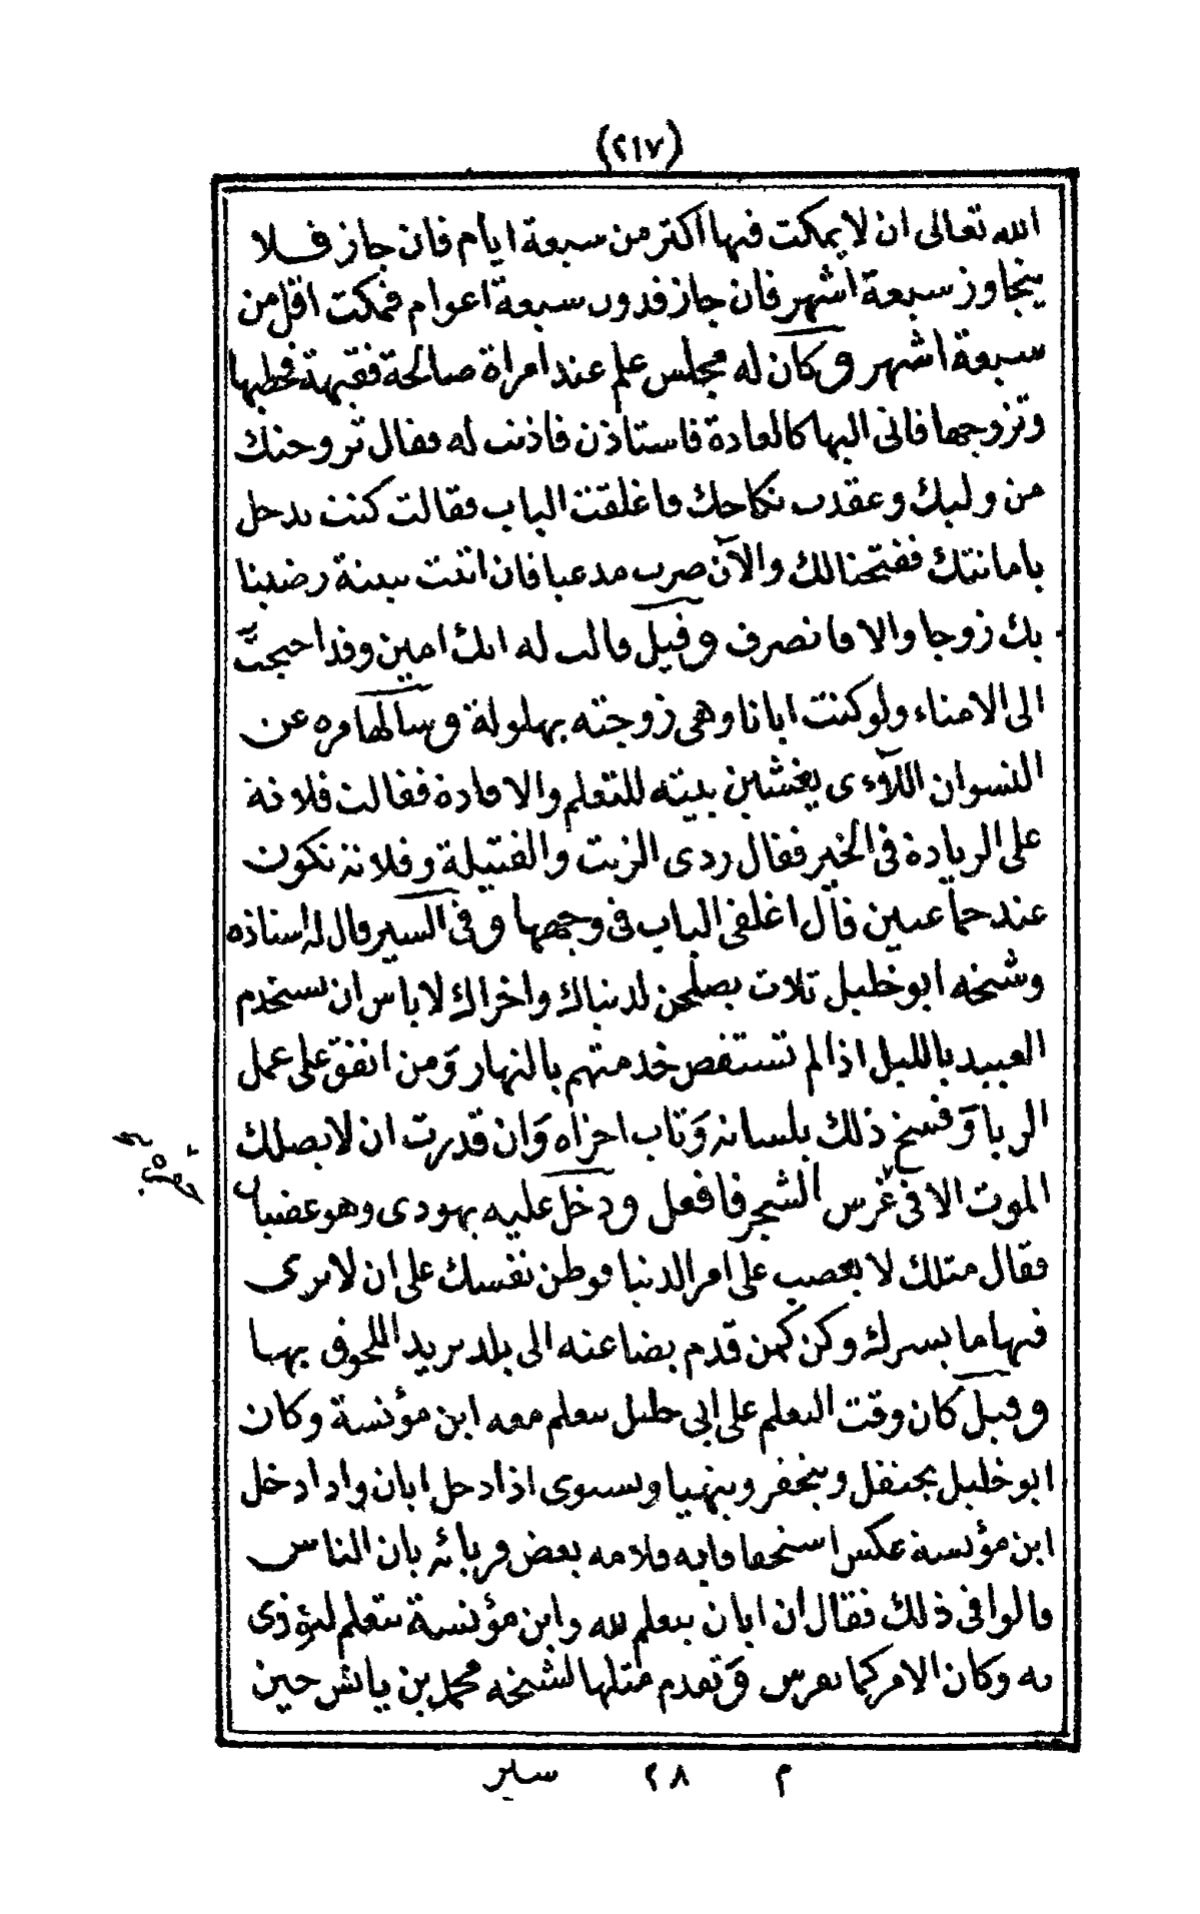 (٢١٧)
الله تعالى ان لا يمكث فيها اكثر من سبعة ايام فان جاز فلا
يتجاوز سبعة اشهر فان جاز فدون سبعة اعوام فمكث اقل من
سبعة اشهر وكان له مجلس علم عند امراة صالحة فقيهة فخطبها
وتزوجها فاتى اليها كالعادة فاستاذن فاذنت له فقال تزوجتك
من وليك وعقدت نكاحك فاغلقت الباب فقالت كنت تدخل
بامانتك ففتحنا لك والآن صرت مدعيا فان اتيت ببينة رضينا
بك زوجا والا فانصرف وقيل قالت له انك امين وقد احتجت
الى الامناء ولو كنت ابانا وهى زوجته بهلولة وسالها مرة عن
النسوان اللآءى يغشين بيته للتعلم والافادة فقالت فلانة
على الزيادة فى الخير فقال ردى الزيت والفتيلة وفلانة تكون
عند حماعيين قال اغلقى الباب فى وجهها وفى السير قال له استاذه
وشيخه ابو خليل ثلاث يصلحن لدنياك واخراك لا باس ان تستخدم
العبيد بالليل اذا لم تستقص خدمتهم بالنهار ومن انفق على عمل
الربا وفسخ ذلك بلسانه وتاب اجزاه وان قدرت ان لا يصلك
الموت الا فى غرس الشجر فافعل ودخل عليه يهودى وهو غضبان
فقال مثلك لا يغضب على امر الدنيا فوطن نفسك على ان لا ترى
فيها ما يسرك وكن كمن قدم بضاعته الى بلد يريد اللحوق بها
وقيل كان وقت التعلم على ابى خليل يتعلم معه ابن مؤنسة وكان
ابو خليل يحتفل ويتحفز ويتهيا ويستوى اذا دخل ابان واذا دخل
ابن مؤنسة عكس استخفافا به فلامه بعض قربائه بان الناس
قالوا فى ذلك فقال ان ابان يتعلم لله وابن مؤنسة يتعلم ليؤذى
به وكان الامر كما تفرس وتقدم مثلها لشيخه محمد بن يانس حين
م ٢٨ سير